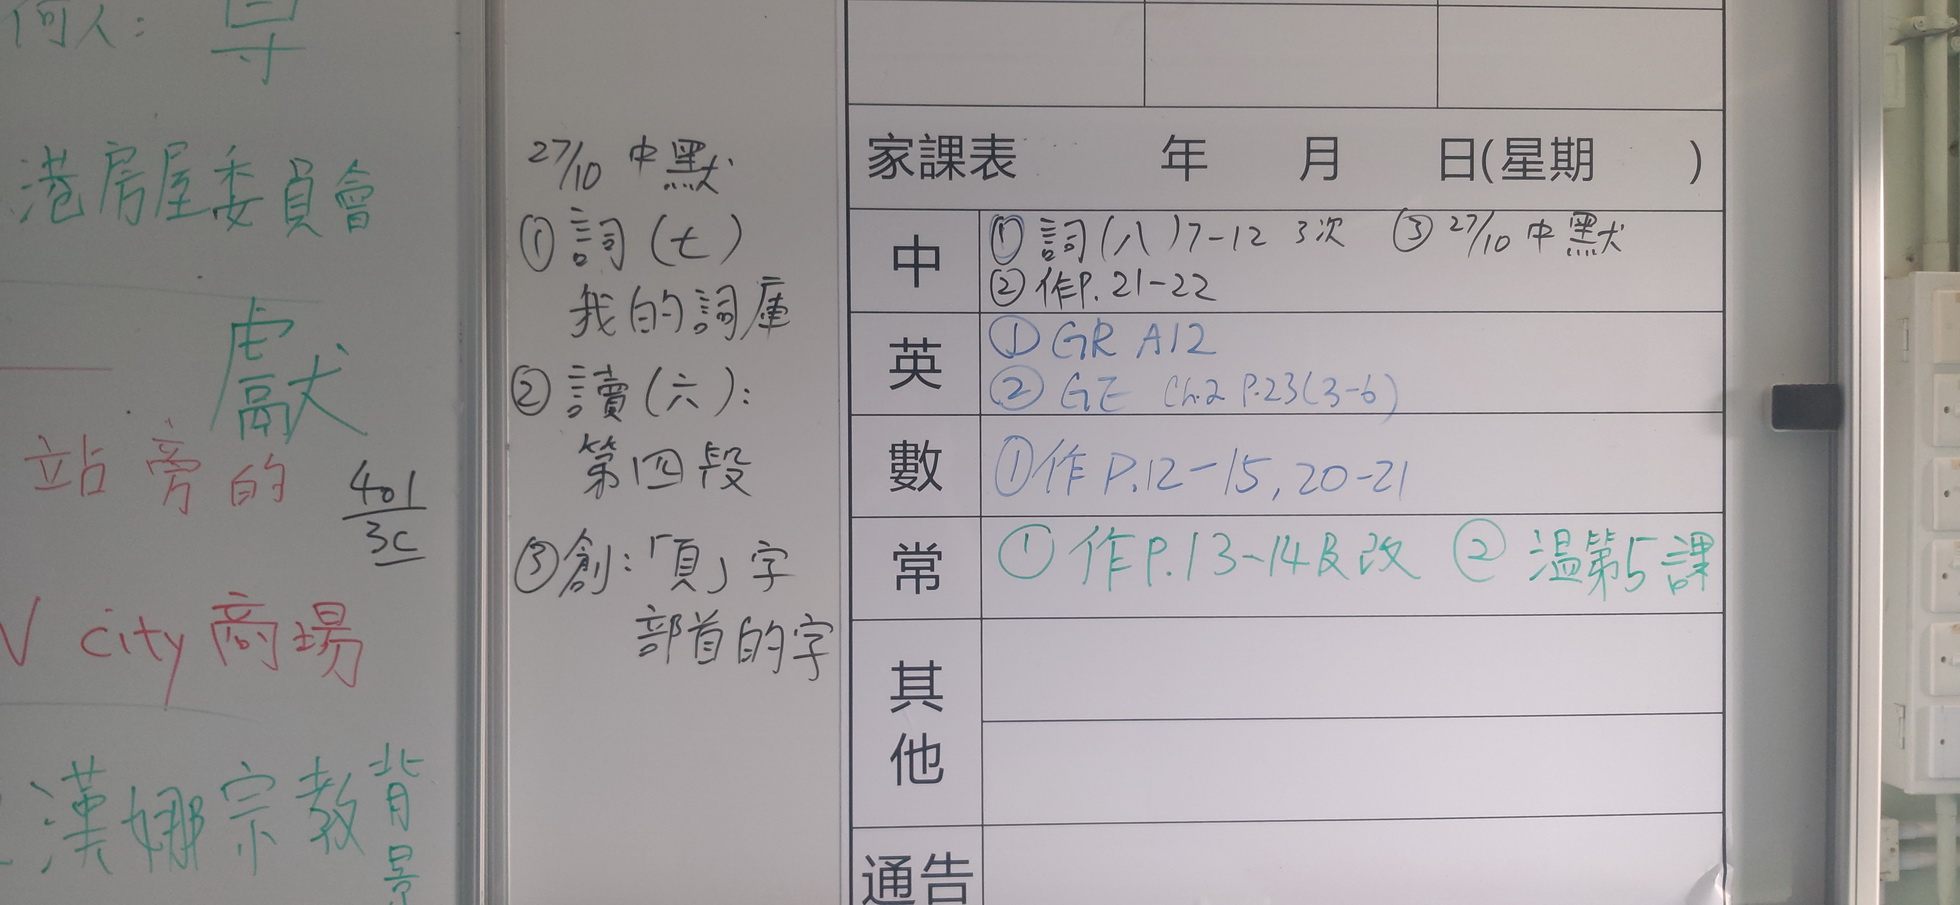 何人：
導
港房屋委員會
獻
站旁的
401
3C
V city 商場
漢娜宗教背景
27/10 中默
① 詞(七)
我的詞庫
② 讀(六)：
第四段
③ 創：「頁」字
部首的字
家課表 年 月 日(星期 )
中
① 詞(八)7-12 3次 ③ 27/10 中默
② 作P.21-22
英
① GR A12
② GE Ch.2 P.23(3-6)
數
① 作P.12-15, 20-21
常
① 作P.13-14及改 ② 溫第5課
其他
通告